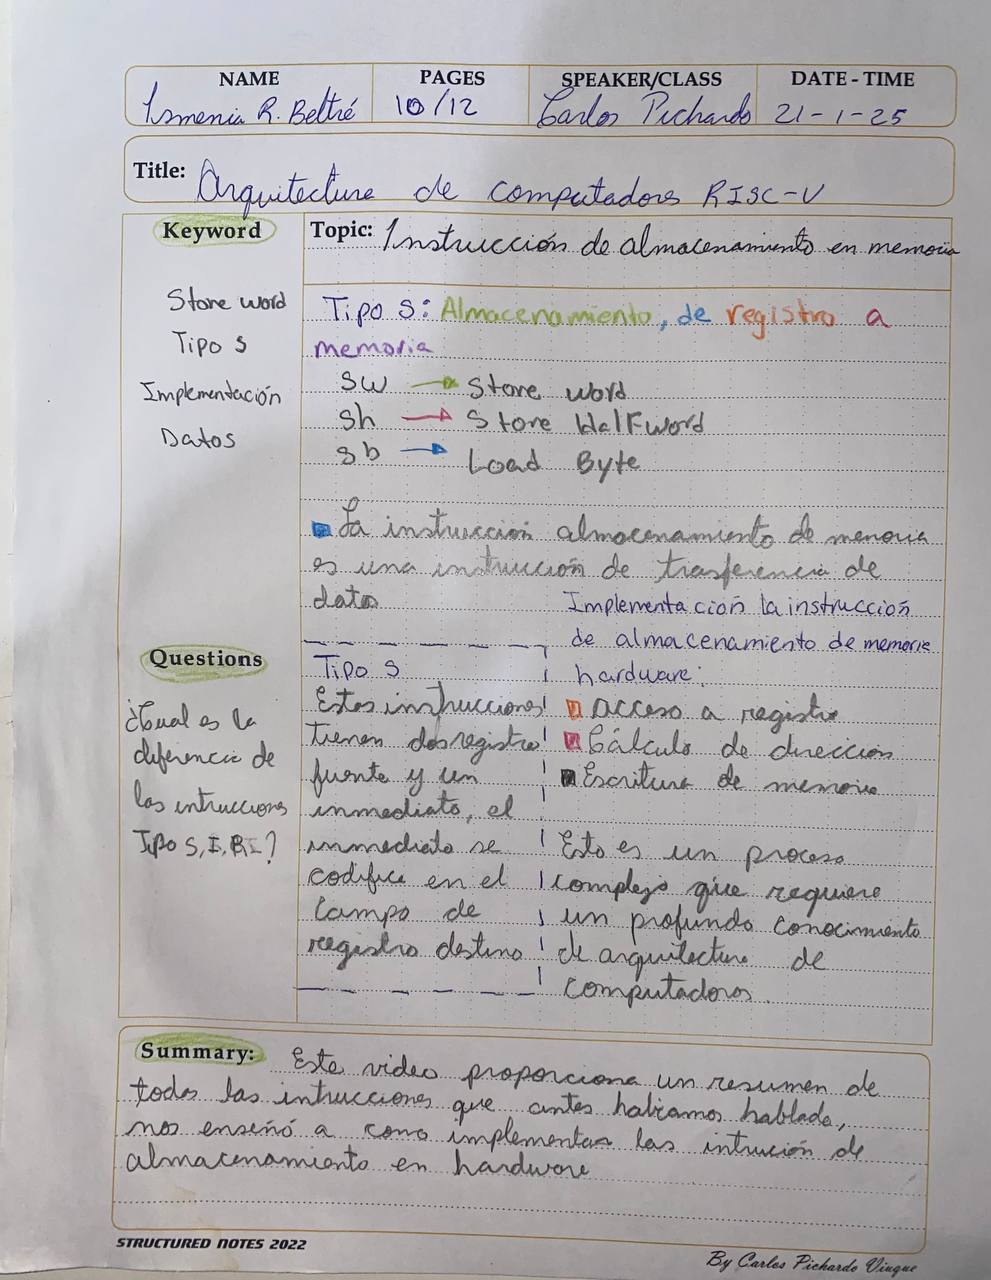 NAME PAGES SPEAKER/CLASS DATE - TIME
Ismenia R. Beltré 10/12 Carlos Pichardo 21-1-25
Title: Arquitectura de computadora RISC-V
Keyword
Store word
Tipo S
Implementación
Datos
Topic: Instrucción de almacenamiento en memoria
Tipo S: Almacenamiento, de registro a
memoria
sw → Store word
sh → Store Halfword
sb → Load Byte
La instrucción almacenamiento de memoria
es una instrucción de trasferencia de
datos
Tipo S
Estas instrucciones
tienen dos registro
fuente y un
inmediato, el
inmediato se
codifica en el
campo de
reegistro destino
Implementación la instrucción
de almacenamiento de memoria
hardware:
acceso a registro
Cálculo de dirección
Escritura de memoria
Esto es un proceso
complejo que requiere
un profundo conocimiento
de arquitectura de
computadoras.
Questions
¿Cual es la
diferencia de
las intrucciones
Tipo S, I, RI?
Summary: Este video proporciona un resumen de
todas las intrucciones que antes habíamos hablado,
nos enseñó a como implementar las intrución de
almacenamiento en hardware
STRUCTURED NOTES 2022
By Carlos Pichardo Viuque